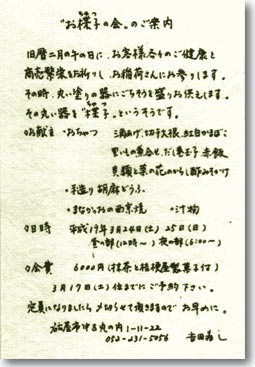 "お様子の会"のご案内
ちゃつ
旧暦二月の午の日に、お客様各々のご健康と
商売繁栄をお祈りし、お稲荷さんにお参りします。
その時、丸い塗りの器にごちそうを盛りお供えします。
その丸い器を"様子"というそうです。
ちゃつ
○お献立 ・おちゃつ 三角あげ、切干大根、紅白かまぼこ
里いもの煮合せ、だし巻玉子 赤飯
貝類と菜の花のからし酢みそかけ
・手造り胡麻どうふ
・まながつおの西京焼 ・汁物
○日時 平成19年3月24日(土) 25日(日)
昼の部(12時〜) 夜の部(6:00〜)
○会費 6000円(抹茶と桔梗屋製菓子付)
3月17日(土)位までにご予約下さい。
定員になりましたら〆切らせて頂きますので お早めに。
名古屋市中区丸の内1-11-22
052-231-5056